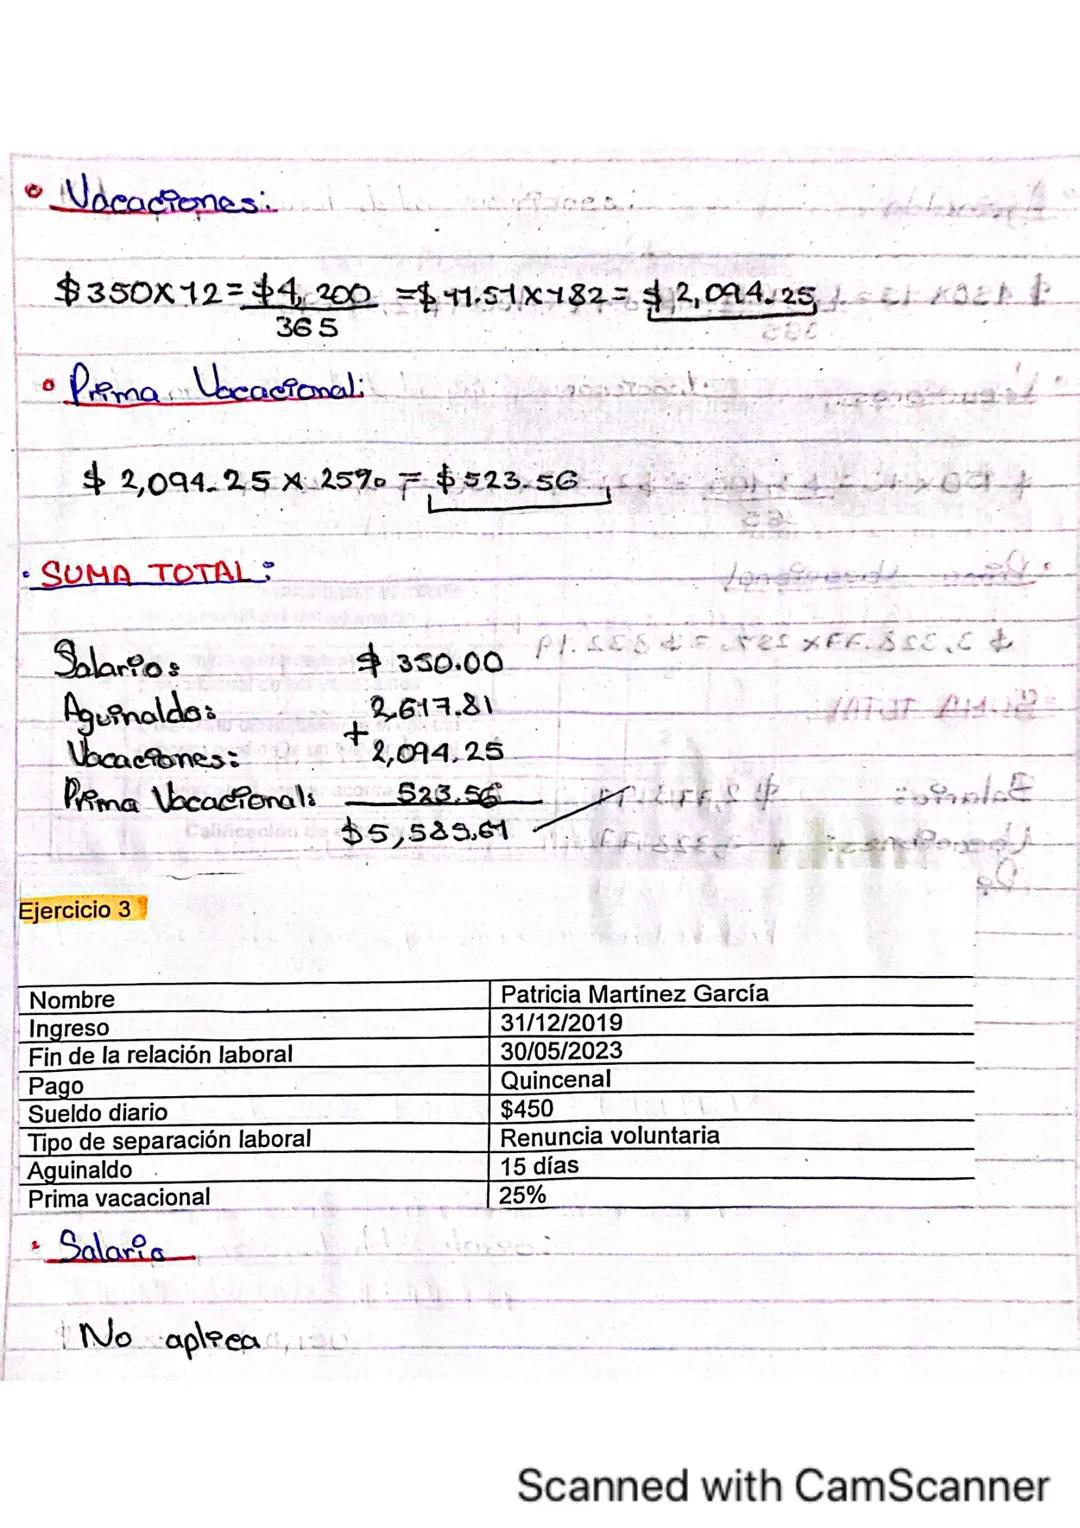 • Vacaciones:
$350X12=$4,200 =$11.51X182= $2,094.25
365
• Prima Vacacional:
$2,094.25 X 25% = $523.56
• SUMA TOTAL:
Salario: $350.00
Aguinaldo: 2,617.81
Vacaciones: + 2,094.25
Prima Vacacional: 523.56
$5,585.61
Ejercicio 3
Nombre Patricia Martínez García
Ingreso 31/12/2019
Fin de la relación laboral 30/05/2023
Pago Quincenal
Sueldo diario $450
Tipo de separación laboral Renuncia voluntaria
Aguinaldo 15 días
Prima vacacional 25%
• Salario
No aplica
Scanned with CamScanner